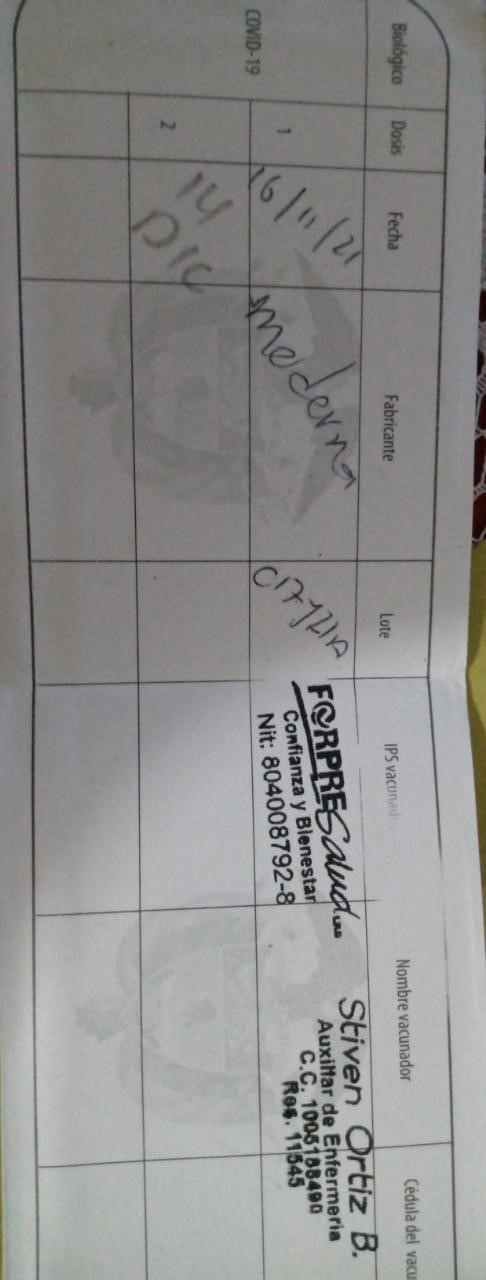 Biológico Dosis Fecha Fabricante Lote IPS vacunad Nombre vacunador Cédula del vacu
COVID-19
1 16/11/21 moderna
FORPRESalud
Confianza y Bienestar
Nit: 804008792-8
Stiven Ortiz B.
Auxiliar de Enfermería
C.C. 1005188490
Res. 11545
2 14
DIC